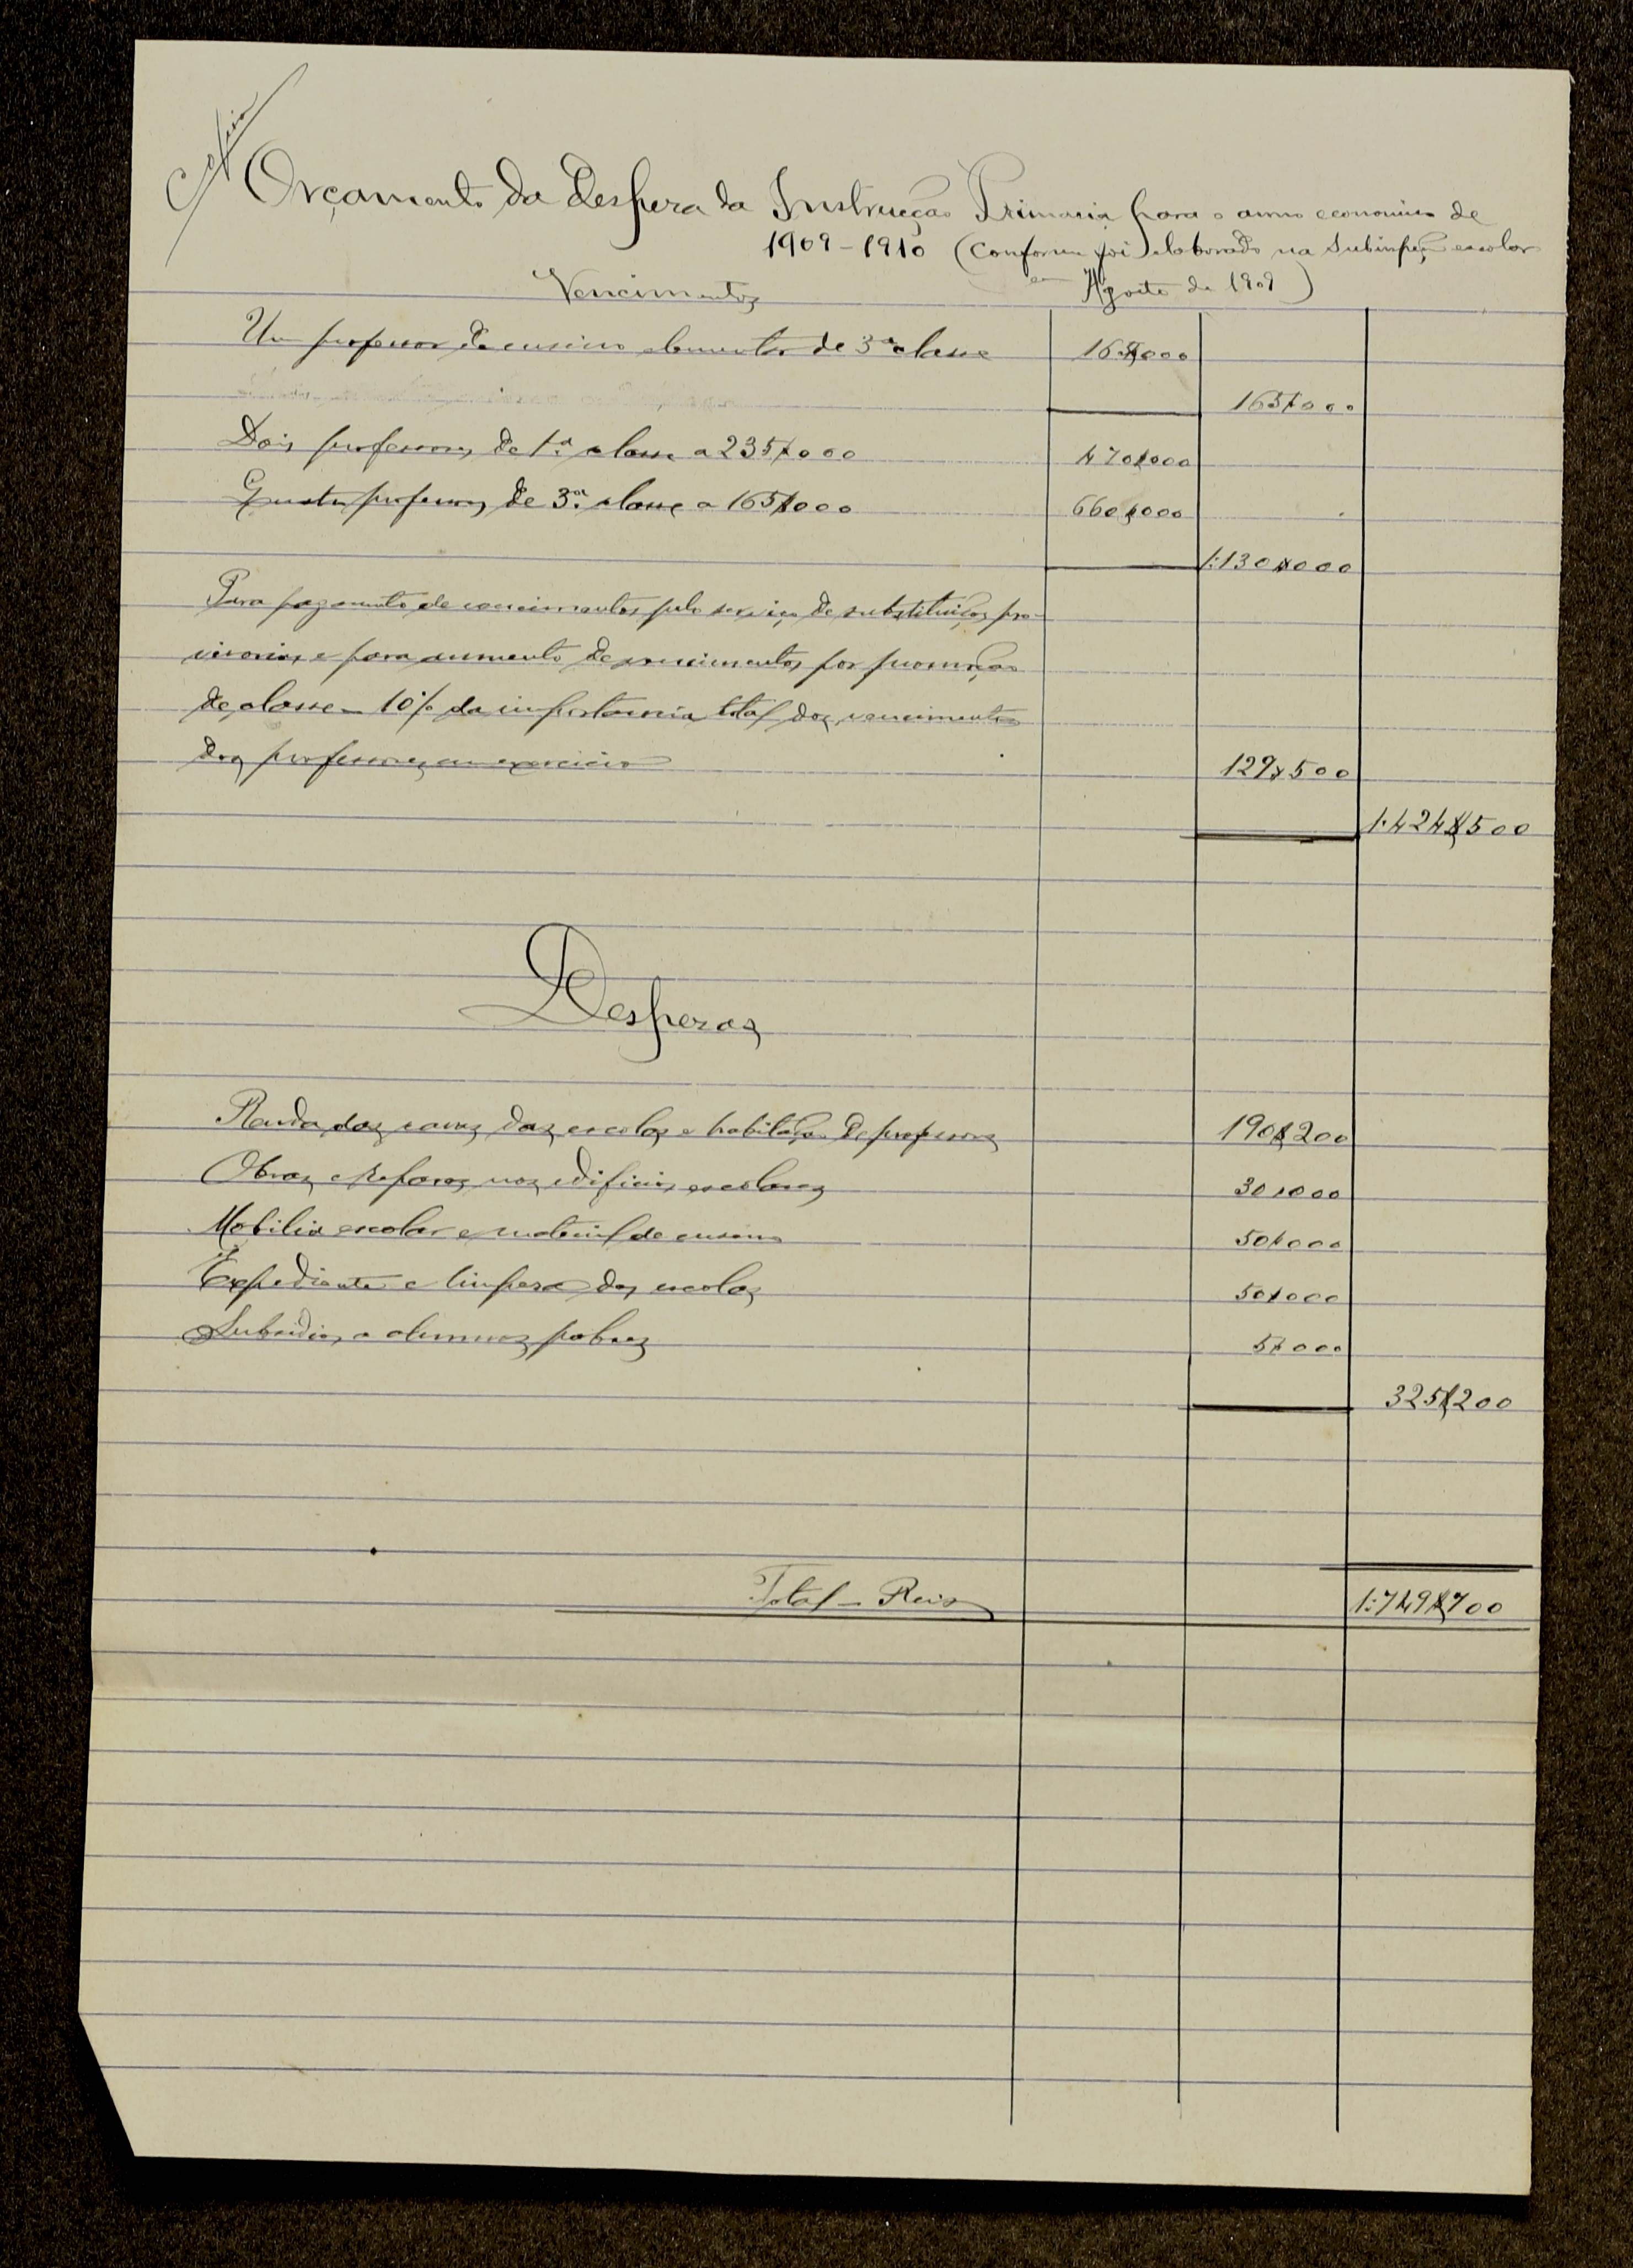 Copia
Orçamento da Despeza da Instrucção Primaria para o anno economico de
1909-1910 (Conforme foi elaborado na Subinspeção escolar
em Agosto de 1909)
Vencimentos
Um professor de ensino elementar de 3ª classe 165$000
165$000
Dois professores de 1ª classe a 235$000 470$000
Quatro professores de 3ª classe a 165$000 660$000
1:130$000
Para pagamento de vencimentos pelo serviço de substituições pro-
visorias, e para aumento de vencimentos por promoção
de classe - 10% da importancia total dos vencimentos
dos professores em exercicio 129$500
1:424$500
Despezas
Renda das casas das escolas e habitação de professores 190$200
Obras e reparos nos edificios escolares 30$000
Mobilia escolar e material de ensino 50$000
Expediente e limpeza das escolas 50$000
Subsidios a alumnos pobres 5$000
325$200
Total - Reis 1:749$700